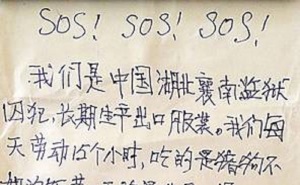 SOS! SOS! SOS!
我们是中国湖北襄南监狱
囚犯,长期生产出口服装。我们每
天劳动15个小时,吃的是猪狗不